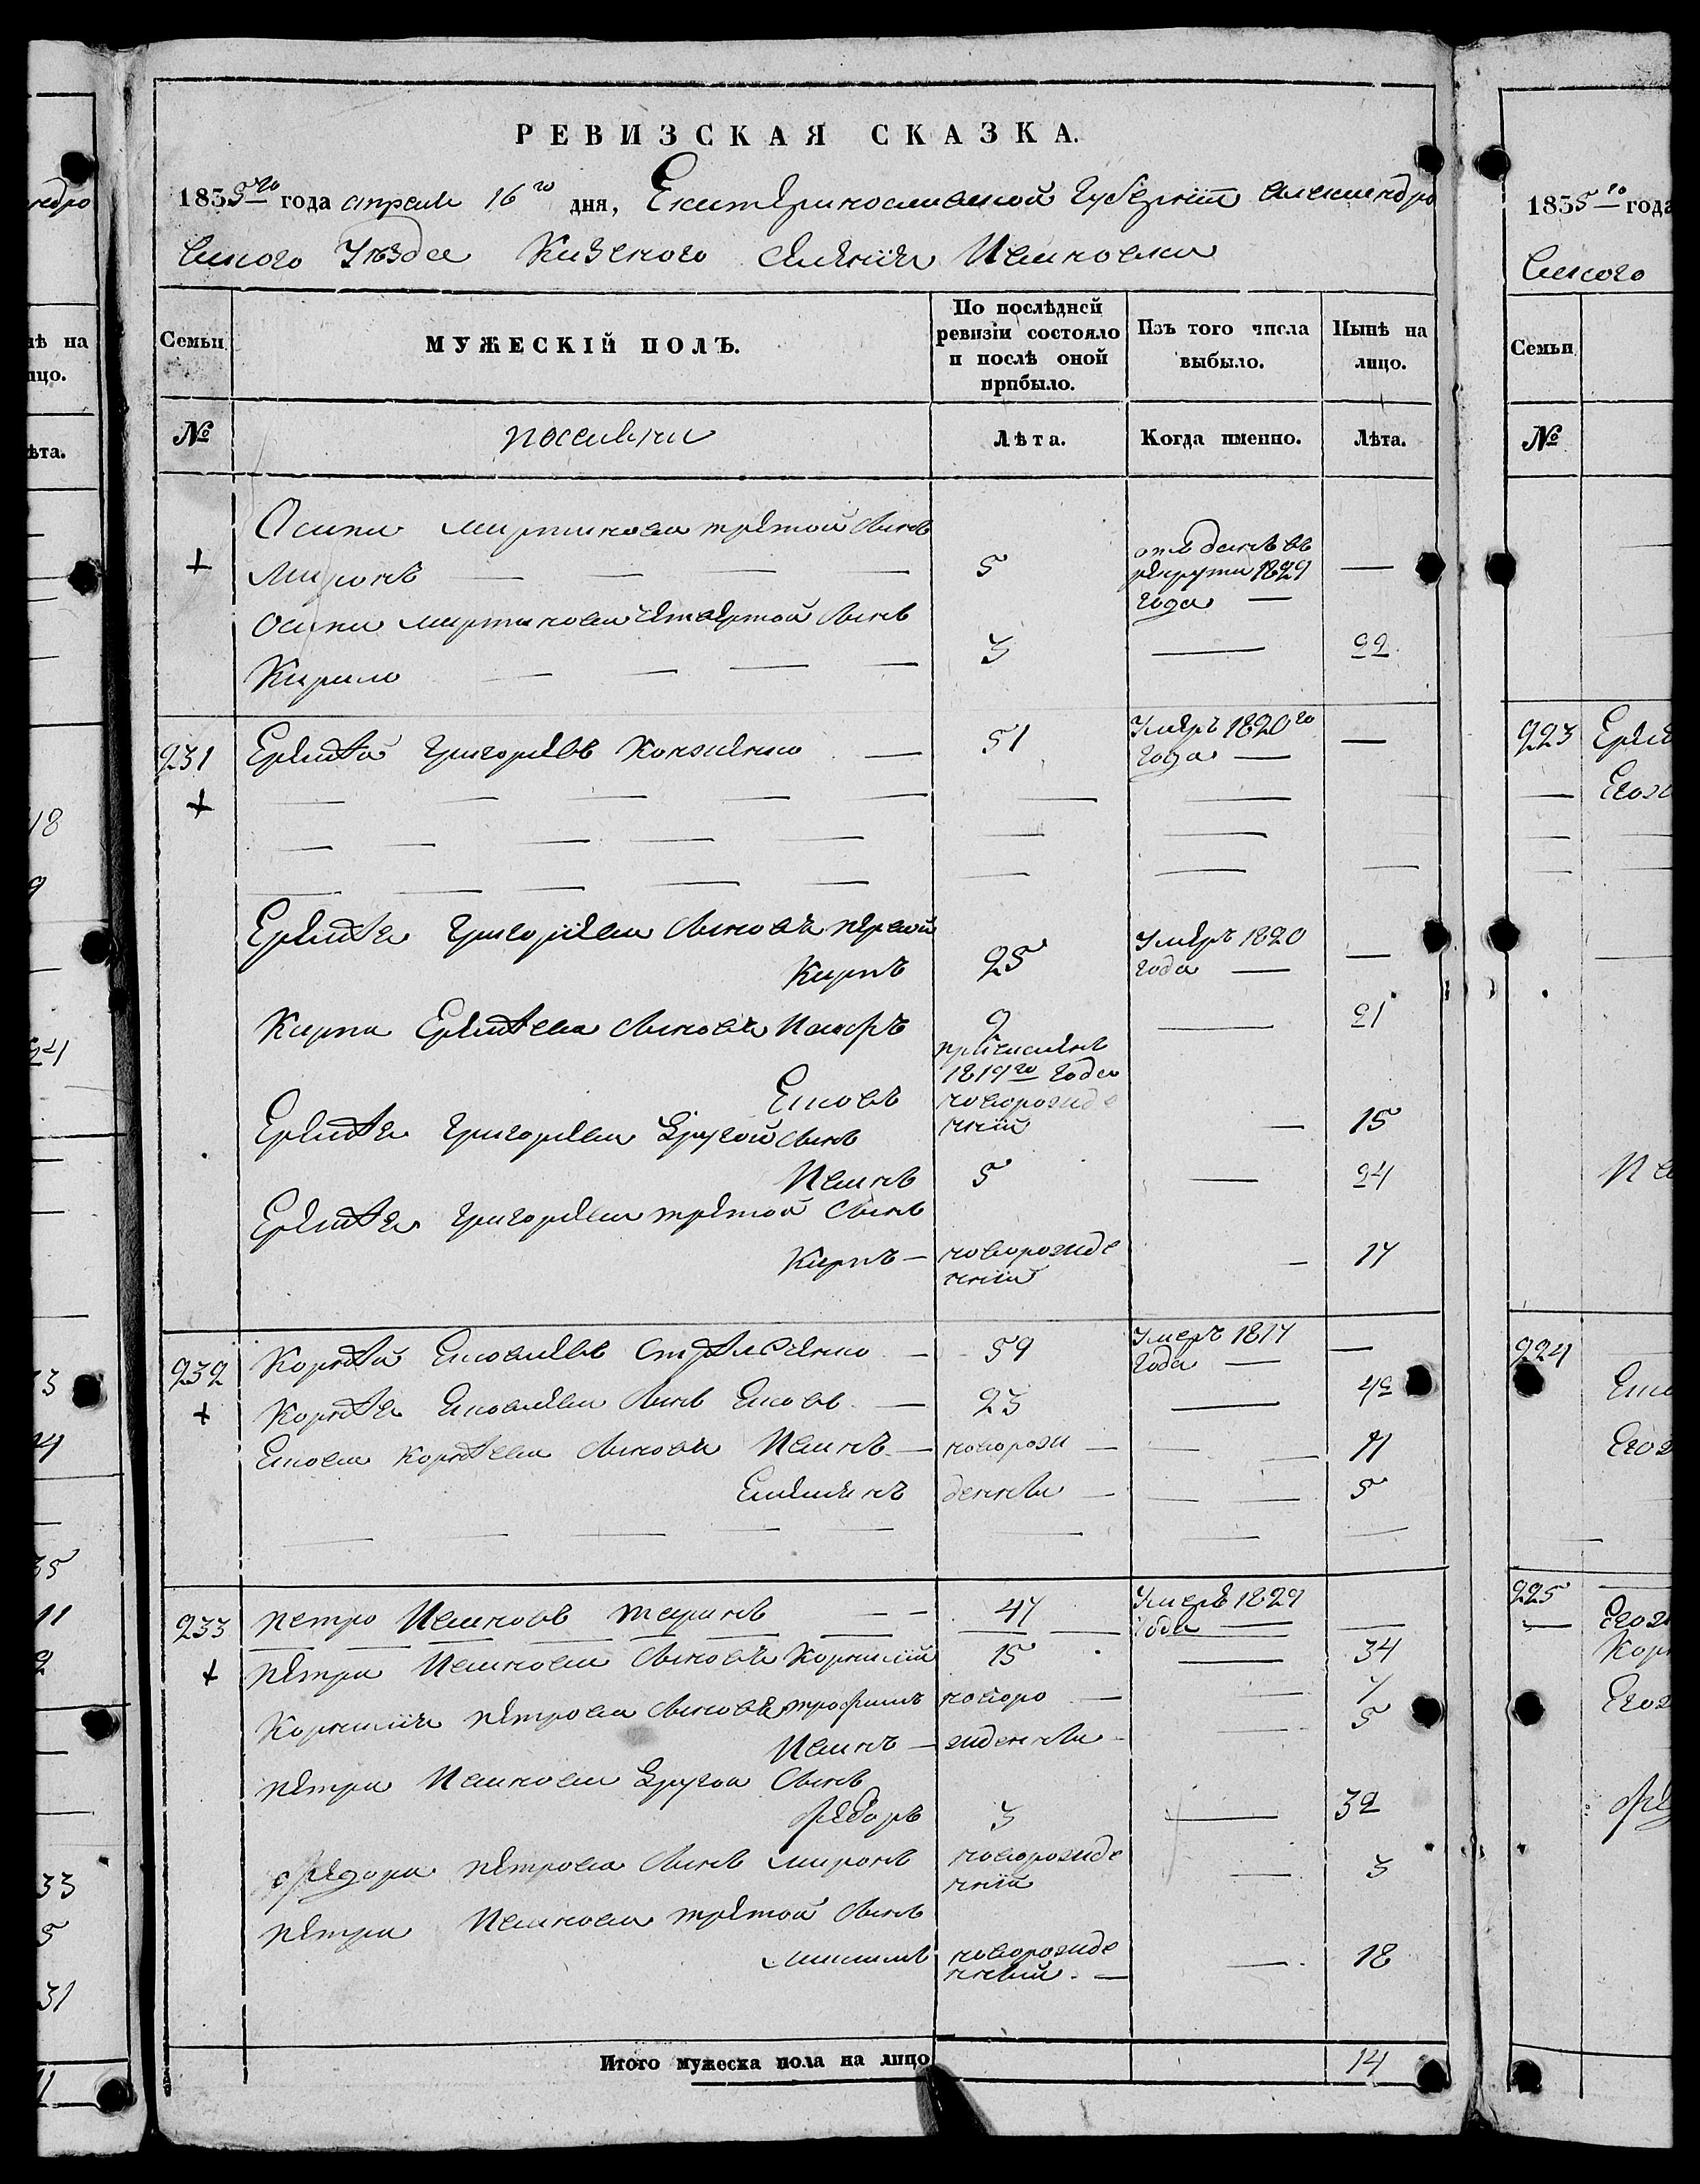 РЕВИЗСКАЯ СКАЗКА.
1835го года апреля 16го дня, Екатеринославской Губерніи александро
вского Уѣзда Казеного селенія Ивановки
Семьи
МУЖЕСКІЙ ПОЛЪ.
По послѣдней ревизіи состояло и послѣ оной прибыло.
Изъ того числа выбыло.
Нынѣ на лицо.
№
Лѣта.
Когда именно.
Лѣта.
Осипа мартинова третой сынъ
Миронъ — 5 отъ данъ въ
рекруты 1829
года —
Осипа мартинова четвертой сынъ
Кирило — 3 — 22
231 Еремѣй Григорьевъ — 51 Умеръ 1820го
года —
Еремѣя Григориева сыновя первой
Карпъ 25 Умеръ 1820
года —
Карпа Еремѣева сыновя 2 — 21
причисленъ
1819го года
Яковъ новорожде
нній — 15
Еремѣя Григориева Другой сынъ
Иванъ 5 — 24
Еремѣя Григориева третой сынъ
Карпъ — новорожде
нній — 17
232 Корнѣй Яковлевъ — 59 Умеръ 1817
года —
Корнѣя Яковлева сынъ Яковъ — 23 — 42
Якова Корнѣева сыновя Иванъ — новорож — 11
Емелянъ денны — 5
233 петро Ивановъ таранъ — 47 Умеръ 1829
года —
петра Иванова сыновя Корнилій 15 — 34
Корнилія петрова сыновя трофимъ новоро — 7
Иванъ — жденны — 5
петра Иванова Другой сынъ
федоръ 3 — 32
федора петрова сынъ миронъ новорожде
нній — 3
петра Иванова третой сынъ
новорожде
нный — 18
Итого мужеска пола на лицо 14
1835го года
вского
Семьи
№
223
224
225